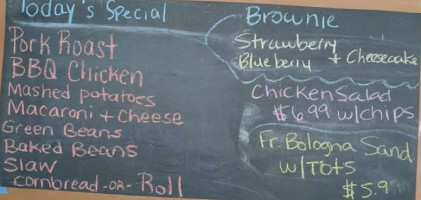 Today's Special
Pork Roast
BBQ Chicken
Mashed potatoes
Macaroni + Cheese
Green Beans
Baked Beans
Slaw
cornbread -OR- Roll
Brownie
Strawberry
Blueberry + Cheesecake
Chicken Salad
$6.99 w/chips
Fr. Bologna Sand
w/TOTS
$5.99